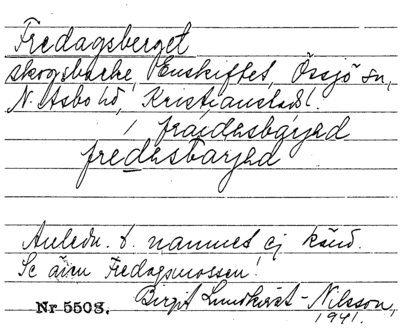 Fredagsberget
skogsbacke, Enskiftet, Össjö sn,
N. Åsbo hd, Kristianstad l.
fredasbarjad
Anledn. t. namnet ej känd.
Se även Fredagsmossen!
Nr 5503. Birgit Lundkvist-Nilsson,
1941.